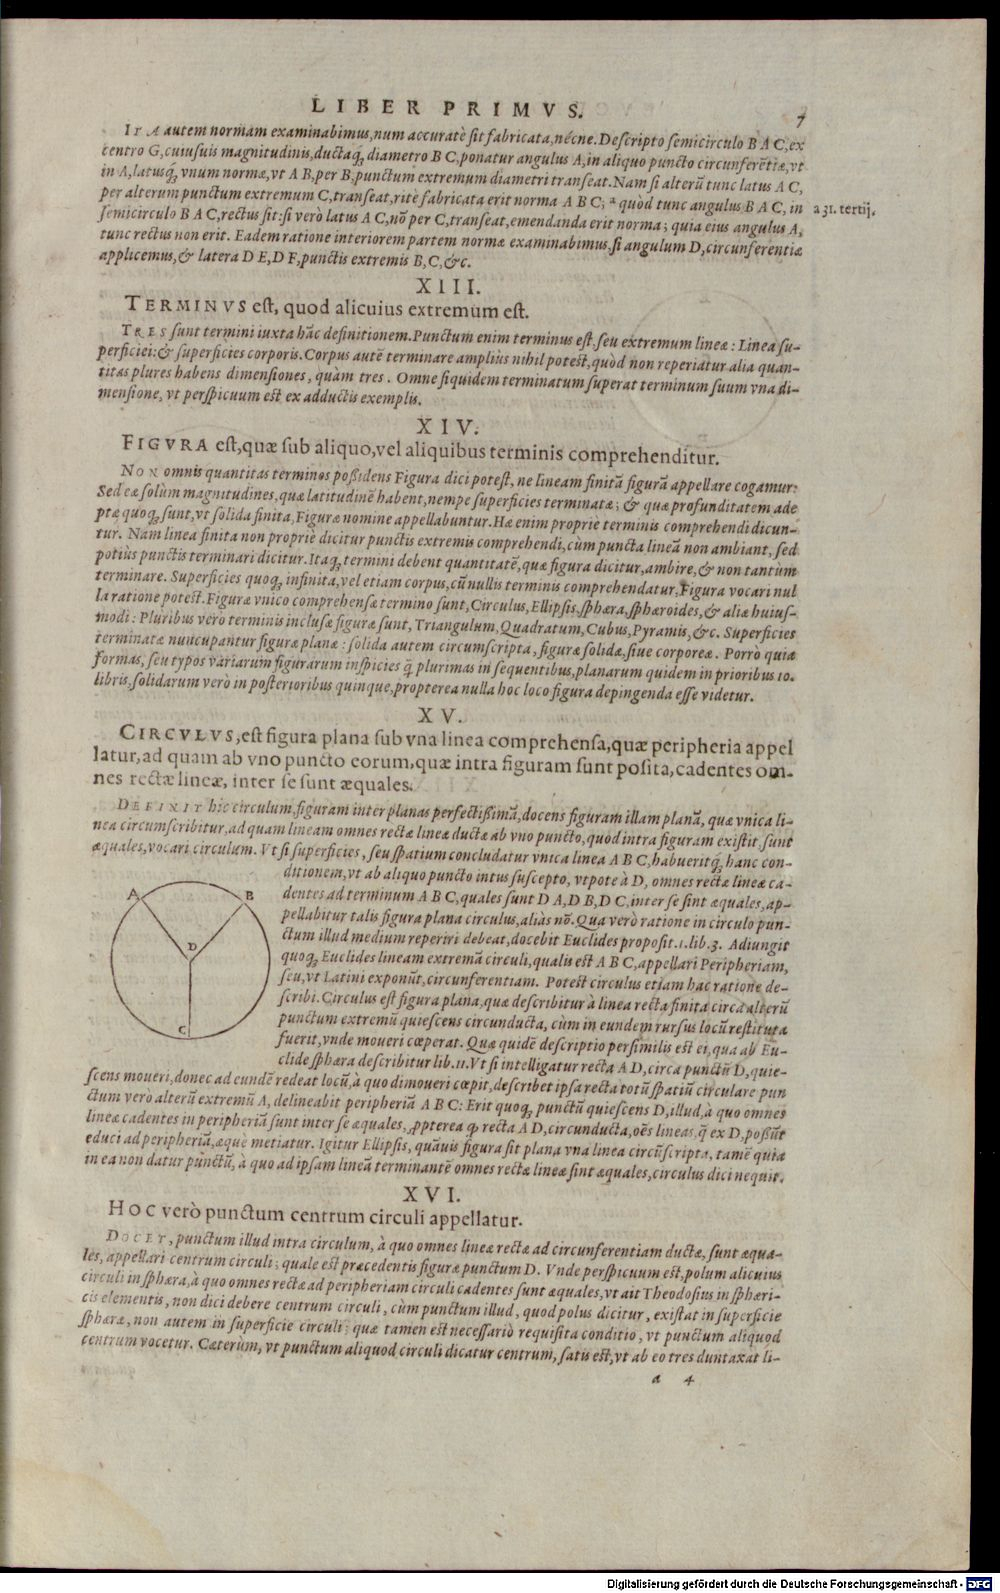 LIBER PRIMVS. 7
ITA autem normam examinabimus, num accuratè sit fabricata, nécne. Descripto semicirculo B A C, ex
centro G, cuiusuis magnitudinis, ductaq́; diametro B C, ponatur angulus A, in aliquo puncto circunferẽtiæ, vt
in A, latusq́; vnum normæ, vt A B, per B, punctum extremum diametri transeat. Nam si alterũ tunc latus A C,
per alterum punctum extremum C, transeat, ritè fabricata erit norma A B C; ᵃ quòd tunc angulus B A C, in
a 31. tertij.
semicirculo B A C, rectus sit: si verò latus A C, nõ per C, transeat, emendanda erit norma; quia eius angulus A,
tunc rectus non erit. Eadem ratione interiorem partem normæ examinabimus, si angulum D, circunferentiæ
applicemus, & latera D E, D F, punctis extremis B, C, &c.
XIII.
TERMINVS est, quod alicuius extremum est.
TRES sunt termini iuxta hãc definitionem. Punctum enim terminus est, seu extremum lineæ: Linea su-
perficiei: & superficies corporis. Corpus autẽ terminare ampliùs nihil potest, quòd non reperiatur alia quan-
titas plures habens dimensiones, quàm tres. Omne siquidem terminatum superat terminum suum vna di-
mensione, vt perspicuum est ex adductis exemplis.
XIV.
FIGVRA est, quæ sub aliquo, vel aliquibus terminis comprehenditur.
NON omnis quantitas terminos possidens Figura dici potest, ne lineam finitã figurã appellare cogamur:
Sed eæ solùm magnitudines, quæ latitudinẽ habent, nempe superficies terminatæ; & quæ profunditatem ade
ptæ quoq; sunt, vt solida finita, Figuræ nomine appellabuntur. Hæ enim propriè terminis comprehendi dicun-
tur. Nam linea finita non propriè dicitur punctis extremis comprehendi, cùm puncta lineã non ambiant, sed
potiùs punctis terminari dicitur. Itaq; termini debent quantitatẽ, quæ figura dicitur, ambire, & non tantùm
terminare. Superficies quoq; infinita, vel etiam corpus, cũ nullis terminis comprehendatur, Figura vocari nul
la ratione potest. Figuræ vnico comprehensæ termino sunt, Circulus, Ellipsis, sphæra, sphæroides, & aliæ huius-
modi: Pluribus verò terminis inclusæ figuræ sunt, Triangulum, Quadratum, Cubus, Pyramis, &c. Superficies
terminatæ nuncupantur figuræ planæ: solida autem circumscripta, figuræ solidæ, siue corporeæ. Porrò quia
formas, seu typos variarum figurarum inspicies q̃ plurimas in sequentibus, planarum quidem in prioribus 10.
libris, solidarum verò in posterioribus quinque, propterea nulla hoc loco figura depingenda esse videtur.
XV.
CIRCVLVS, est figura plana sub vna linea comprehensa, quæ peripheria appel
latur, ad quam ab vno puncto eorum, quæ intra figuram sunt posita, cadentes om-
nes rectæ lineæ, inter se sunt æquales.
DEFINIT hîc circulum, figuram inter planas perfectissimã, docens figuram illam planã, quæ vnica li-
nea circumscribitur, ad quam lineam omnes rectæ lineæ ductæ ab vno puncto, quod intra figuram existit, sunt
æquales, vocari circulum. Vt si superficies, seu spatium concludatur vnica linea A B C, habueritq́; hanc con-
ditionem, vt ab aliquo puncto intus suscepto, vtpote à D, omnes rectæ lineæ ca-
dentes ad terminum A B C, quales sunt D A, D B, D C, inter se sint æquales, ap-
pellabitur talis figura plana circulus, aliàs nõ. Qua verò ratione in circulo pun-
ctum illud medium reperiri debeat, docebit Euclides proposit. 1. lib. 3. Adiungit
quoq; Euclides lineam extremã circuli, qualis est A B C, appellari Peripheriam,
seu, vt Latini exponũt, circunferentiam. Potest circulus etiam hac ratione de-
scribi. Circulus est figura plana, quæ describitur à linea recta finita circa alterũ
punctum extremũ quiescens circunducta, cùm in eundem rursus locũ restituta
fuerit, vnde moueri cœperat. Quæ quidẽ descriptio persimilis est ei, qua ab Eu-
clide sphæra describitur lib. 11. Vt si intelligatur recta A D, circa punctũ D, quie-
scens moueri, donec ad eundẽ redeat locũ, à quo dimoueri cœpit, describet ipsa recta totũ spatiũ circulare pun
ctum verò alterũ extremũ A, delineabit peripheriã A B C: Erit quoq; punctũ quiescens D, illud, à quo omnes
lineæ cadentes in peripheriã sunt inter se æquales, ꝓpterea ꝙ recta A D, circunducta, oẽs lineas, q̃ ex D, possũt
educi ad peripheriã, æquè metiatur. Igitur Ellipsis, quãuis figura sit plana vna linea circũscripta, tamẽ quia
in ea non datur punctũ, à quo ad ipsam lineã terminantẽ omnes rectæ lineæ sint æquales, circulus dici nequit.
A
B
D
C
XVI.
HOC verò punctum centrum circuli appellatur.
DOCET, punctum illud intra circulum, à quo omnes lineæ rectæ ad circunferentiam ductæ, sunt æqua-
les, appellari centrum circuli; quale est præcedentis figuræ punctum D. Vnde perspicuum est, polum alicuius
circuli in sphæra, à quo omnes rectæ ad peripheriam circuli cadentes sunt æquales, vt ait Theodosius in sphæri-
cis elementis, non dici debere centrum circuli, cùm punctum illud, quod polus dicitur, existat in superficie
sphæræ, non autem in superficie circuli; quæ tamen est necessariò requisita conditio, vt punctum aliquod
centrum vocetur. Cæterùm, vt punctum aliquod circuli dicatur centrum, satis est, vt ab eo tres duntaxat li-
a 4
Digitalisierung gefördert durch die Deutsche Forschungsgemeinschaft - DFG